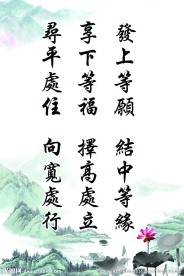 發上等願 結中等緣
享下等福 擇高處立
尋平處住 向寬處行